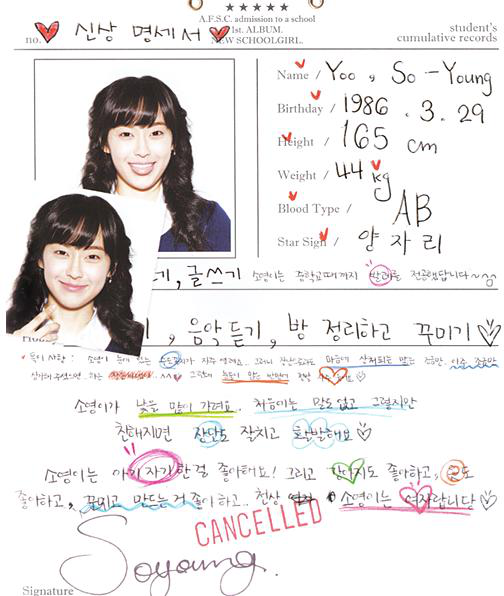 ★★★★★
A.F.S.C. admission to a school
no. 신상 명세서 1st. ALBUM. student's
NEW SCHOOLGIRL. cumulative records
Name / Yoo, So-Young
Birthday / 1986. 3. 29
Height / 165 cm
Weight / 44 kg
Blood Type / AB
Star Sign / 양자리
글쓰기 소영이는 중학교때까지 발레를 전공했답니다~
음악듣기, 방 정리하고 꾸미기♡
특이사항 : 소영이
소영이가 낯을 많이 가려요. 처음에는 말도없고 그렇지만
친해지면 장난도 잘치고 활발해요♡
소영이는 아기자기한걸 좋아해요! 그리고 강아지도 좋아하고,
좋아하고, 꾸미고 만드는거 좋아하고.. 천상 소영이는 여자랍니다♡
CANCELLED
Soyoung.
Signature